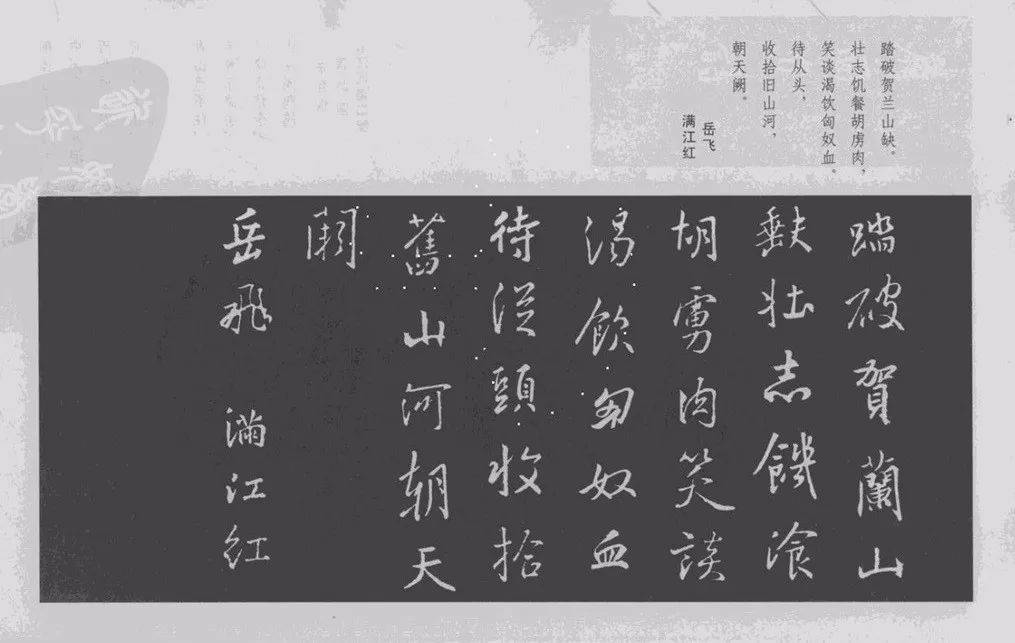 踏破贺兰山缺。
壮志饥餐胡虏肉，
笑谈渴饮匈奴血。
待从头，
收拾旧山河，
朝天阙。
岳飞
满江红
踏破賀蘭山
𡙇壮志饑飡
胡虜肉笑談
渴飲匈奴血
待従頭收拾
舊山河朝天
闕
岳飛 滿江紅